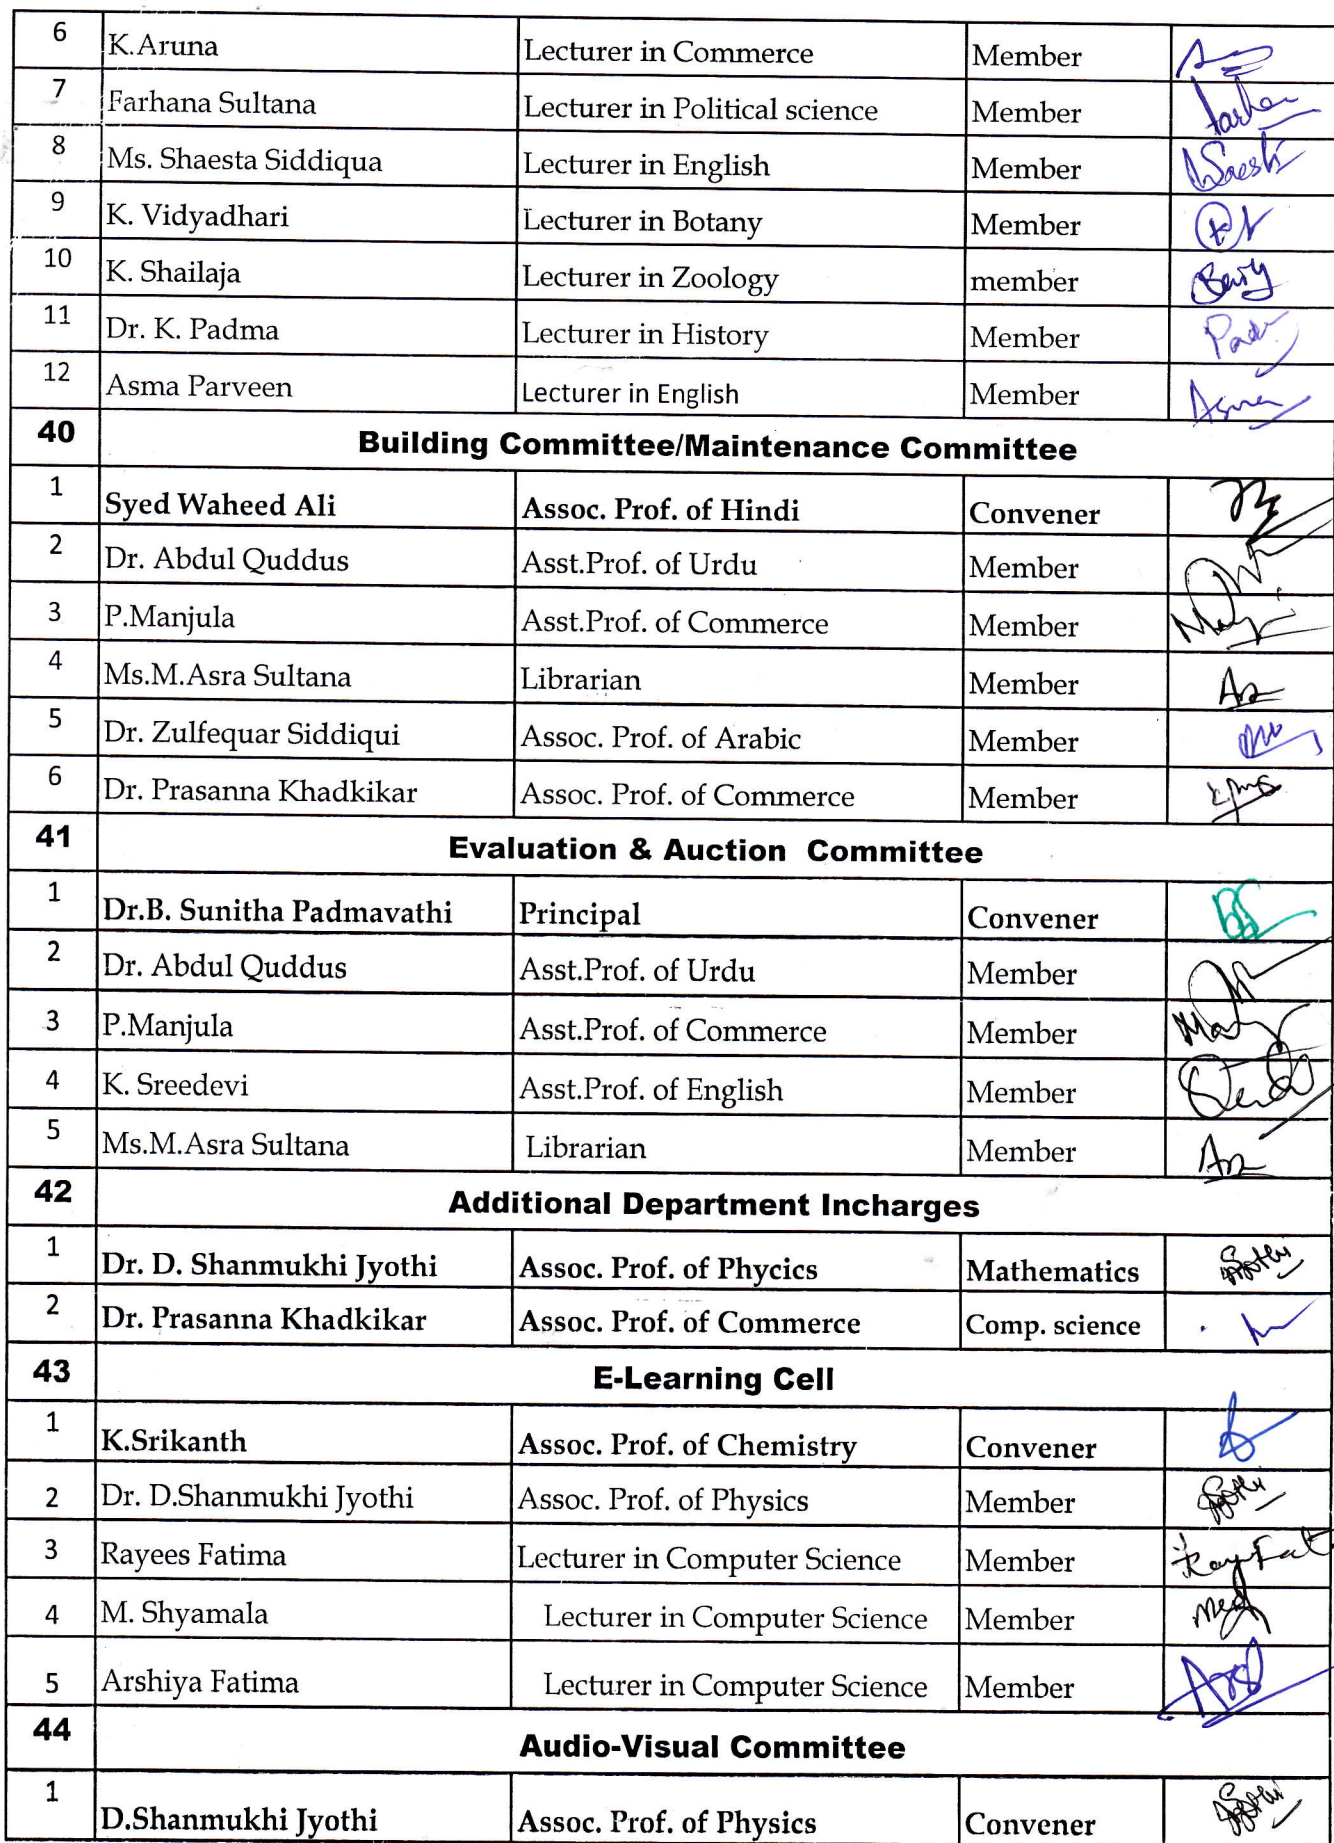 6 K.Aruna Lecturer in Commerce Member
7 Farhana Sultana Lecturer in Political science Member
8 Ms. Shaesta Siddiqua Lecturer in English Member
9 K. Vidyadhari Lecturer in Botany Member
10 K. Shailaja Lecturer in Zoology member
11 Dr. K. Padma Lecturer in History Member
12 Asma Parveen Lecturer in English Member
40 Building Committee/Maintenance Committee
1 Syed Waheed Ali Assoc. Prof. of Hindi Convener
2 Dr. Abdul Quddus Asst.Prof. of Urdu Member
3 P.Manjula Asst.Prof. of Commerce Member
4 Ms.M.Asra Sultana Librarian Member
5 Dr. Zulfequar Siddiqui Assoc. Prof. of Arabic Member
6 Dr. Prasanna Khadkikar Assoc. Prof. of Commerce Member
41 Evaluation & Auction Committee
1 Dr.B. Sunitha Padmavathi Principal Convener
2 Dr. Abdul Quddus Asst.Prof. of Urdu Member
3 P.Manjula Asst.Prof. of Commerce Member
4 K. Sreedevi Asst.Prof. of English Member
5 Ms.M.Asra Sultana Librarian Member
42 Additional Department Incharges
1 Dr. D. Shanmukhi Jyothi Assoc. Prof. of Phycics Mathematics
2 Dr. Prasanna Khadkikar Assoc. Prof. of Commerce Comp. science
43 E-Learning Cell
1 K.Srikanth Assoc. Prof. of Chemistry Convener
2 Dr. D.Shanmukhi Jyothi Assoc. Prof. of Physics Member
3 Rayees Fatima Lecturer in Computer Science Member
4 M. Shyamala Lecturer in Computer Science Member
5 Arshiya Fatima Lecturer in Computer Science Member
44 Audio-Visual Committee
1 D.Shanmukhi Jyothi Assoc. Prof. of Physics Convener